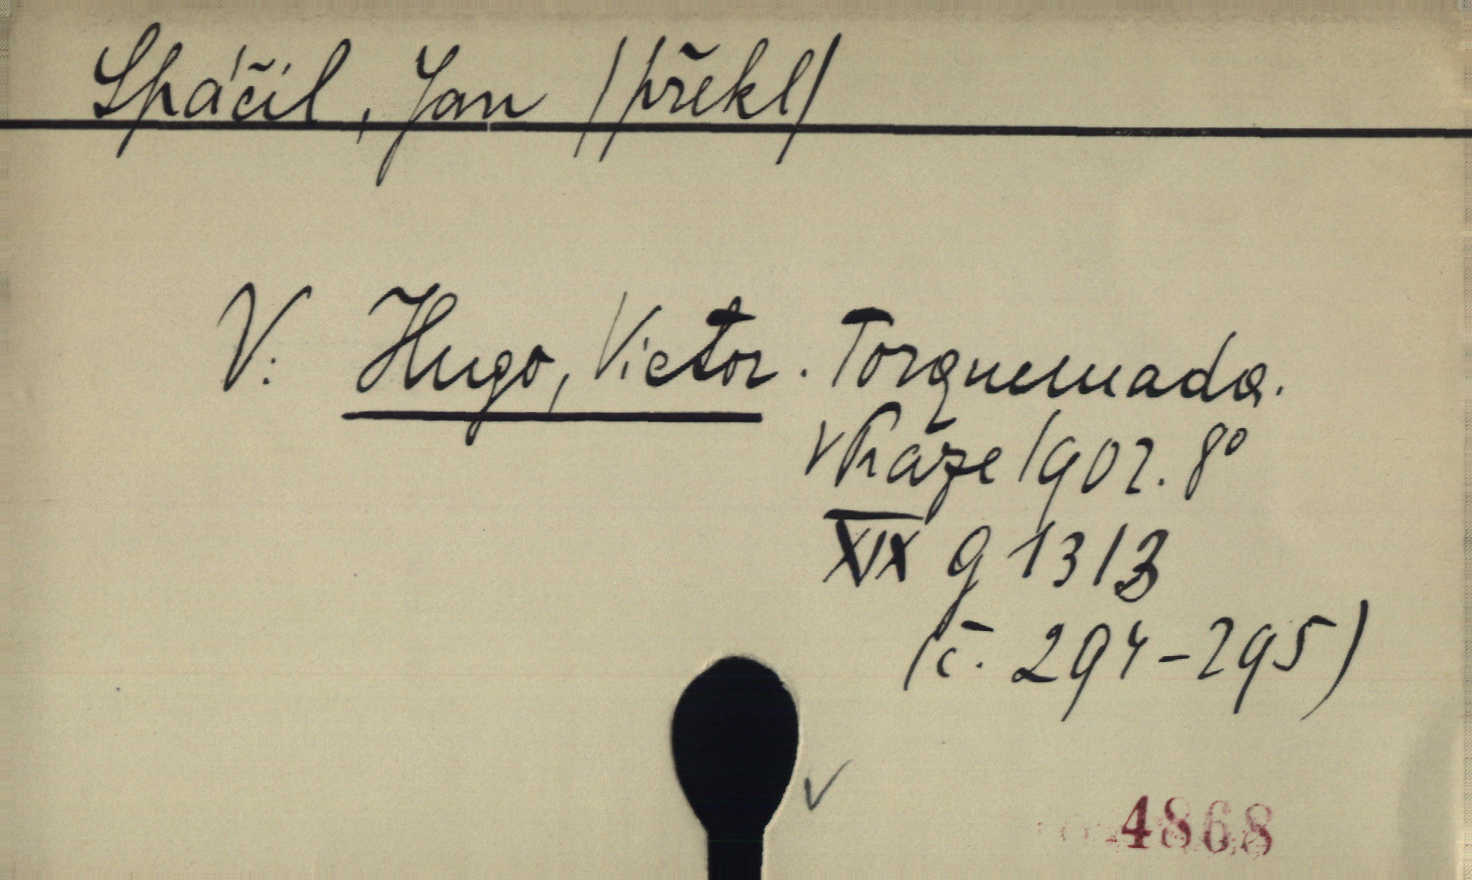 Spáčil, Jan /překl/
V. Hugo, Victor. Torquemada.
v Praze 1902. 8°
XIX g 13/3
(č. 294-295)
4868